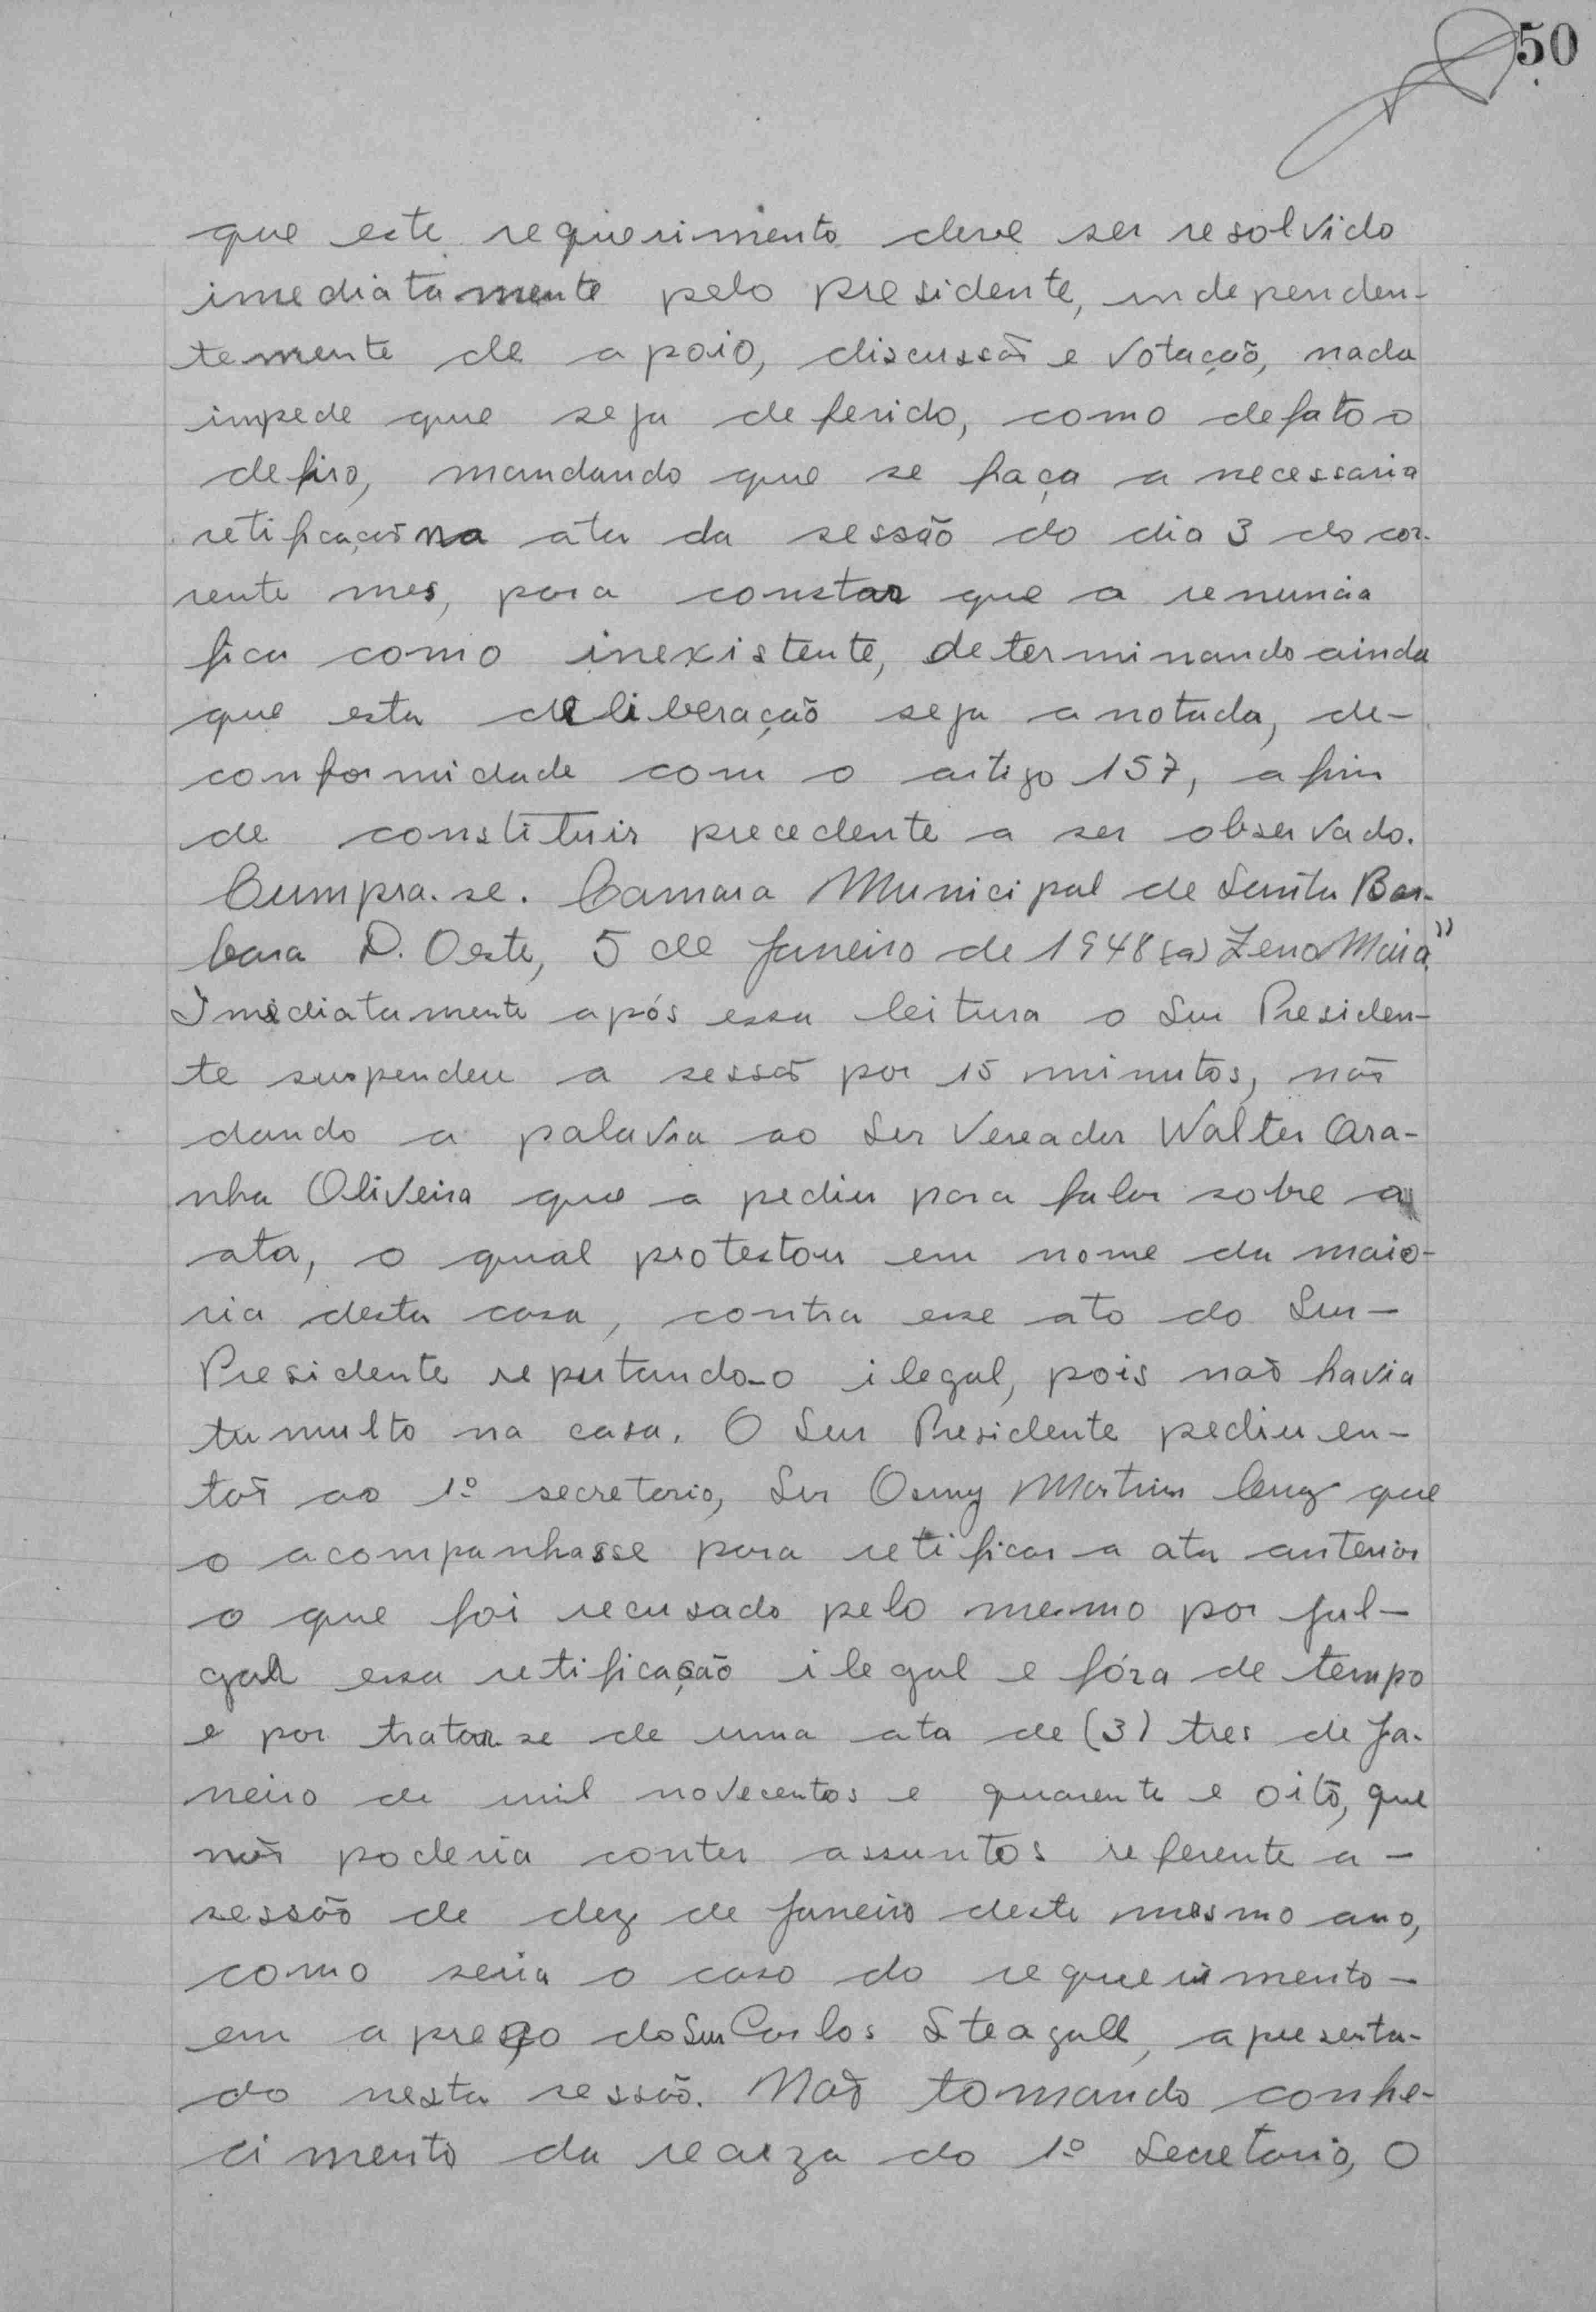 50
que este requerimento deve ser resolvido
imediatamente pelo presidente, independen-
temente de apoio, discussão e votação, nada
impede que seja deferido, como defato o
defiro, mandando que se faça a necessaria
retificação na ata da sessão do dia 3 do cor-
rente mes, para constar que a renuncia
fica como inexistente, determinando ainda
que esta deliberação seja anotada, de-
conformidade com o artigo 157, afim
de constituir precedente a ser observado.
Cumpra-se. Camara Municipal de Santa Bar-
bara D. Oeste, 5 de Janeiro de 1948 (a) Zeno Maia"
Imediatamente após essa leitura o Snr Presiden-
te suspendeu a sessão por 15 minutos, não
dando a palavra ao Snr Vereador Walter Ara-
nha Oliveira que a pediu para falar sobre a
ata, o qual protestou em nome da maio-
ria desta casa, contra esse ato do Snr-
Presidente reputando-o ilegal, pois não havia
tumulto na casa. O Snr Presidente pediu en-
tão ao 1º secretario, Snr Osmy Martins Cruz que
o acompanhasse para retificar a ata anterior
o que foi recusado pelo mesmo por jul-
gar essa retificação ilegal e fóra de tempo
e por tratar se de uma ata de (3) tres de Ja-
neiro de mil novecentos e quarenta e oito, que
não poderia conter assuntos referente a-
sessão de dez de Janeiro deste mesmo ano,
como seria o caso do requerimento-
em apreço do Snr Carlos Steagall, apresenta-
do nesta sessão. Não tomando conhe-
cimento da do 1º Secretario, O